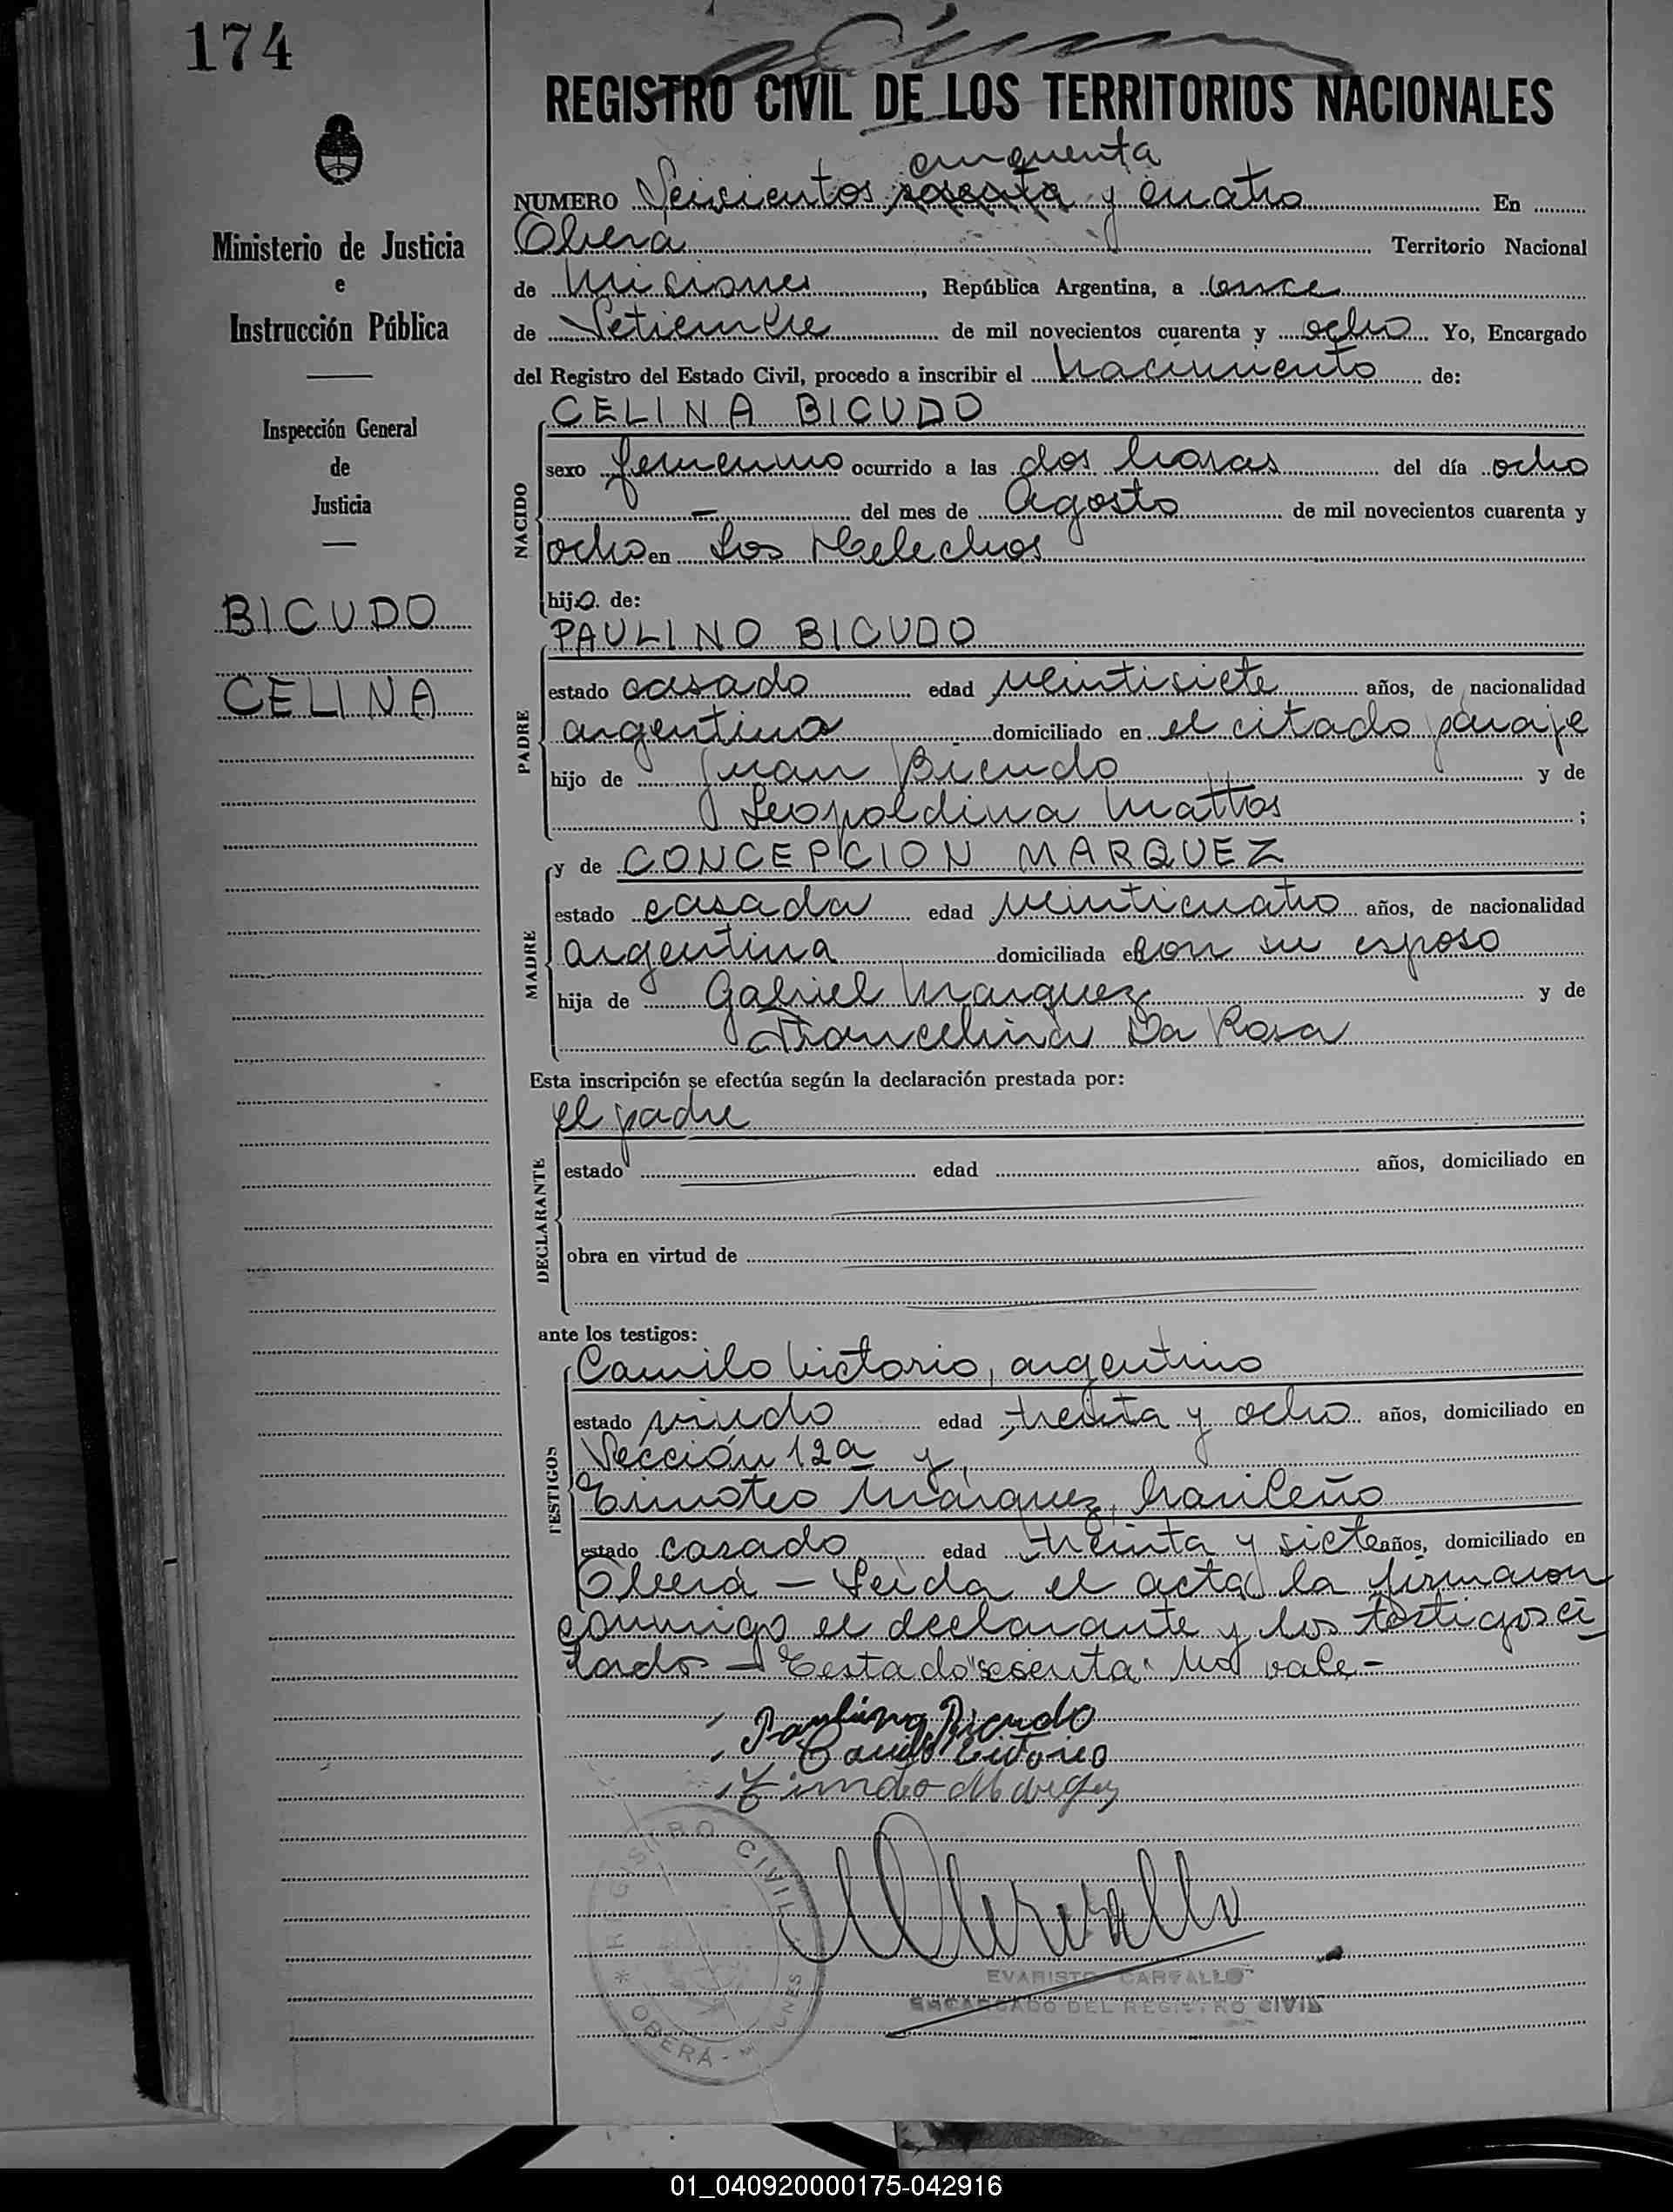 174
REGISTRO CIVIL DE LOS TERRITORIOS NACIONALES
Ministerio de Justicia
e
Instrucción Pública
Inspección General
de
Justicia
BICUDO
CELINA
cinquenta
NUMERO Seiscientos sesenta y cuatro En
Oberá Territorio Nacional
de Misiones, República Argentina, a once
de Setiembre de mil novecientos cuarenta y ocho Yo, Encargado
del Registro del Estado Civil, procedo a inscribir el nacimiento de:
CELINA BICUDO
NACIDO
sexo femenino ocurrido a las dos horas del día ocho
— del mes de Agosto de mil novecientos cuarenta y
ocho en Los Helechos
hija de:
PAULINO BICUDO
PADRE
estado casado edad veintisiete años, de nacionalidad
argentina domiciliado en el citado paraje
hijo de Juan Bicudo y de
Leopoldina Mattos ;
y de CONCEPCION MARQUEZ
MADRE
estado casada edad veinticuatro años, de nacionalidad
argentina domiciliada con su esposo
hija de Gabriel Marquez y de
Francelina Da Rosa
Esta inscripción se efectúa según la declaración prestada por:
el padre
DECLARANTE
estado edad años, domiciliado en
obra en virtud de
ante los testigos:
TESTIGOS
Camilo Victorio, argentino
estado viudo edad treinta y ocho años, domiciliado en
Sección 12a y
Timoteo Márquez, brasileño
estado casado edad treinta y siete años, domiciliado en
Oberá — Leida el acta la firmaron
conmigo el declarante y los testigos ci
tados — Testado "sesenta" No vale —
Paulino Bicudo
Camilo Victorio
Timoteo Marquez
REGISTRO CIVIL
* OBERÁ - MISIONES
EVARISTO CARVALLO
ENCARGADO DEL REGISTRO CIVIL
01_040920000175-042916